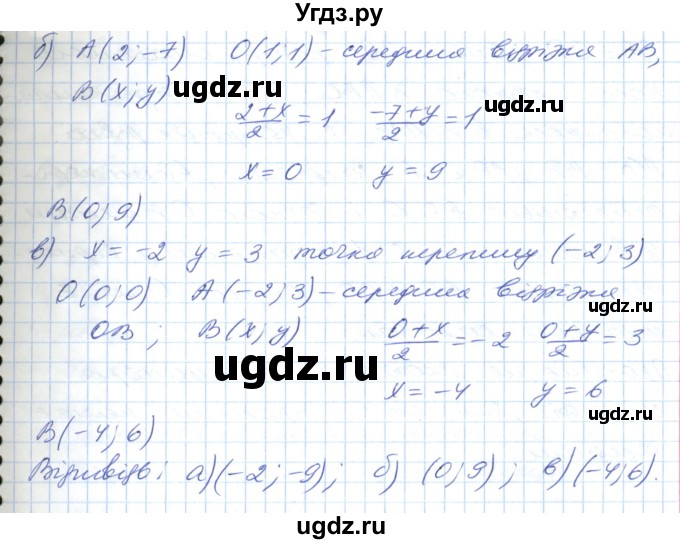 Угдз.ру
б) A(2; -7) O(1; 1) - середина відрізка AB,
B(x; y)
ugdz.ru
ugdz.ru
(2+x)/2 = 1 (-7+y)/2 = 1
x = 0 y = 9
B(0; 9)
в) x = -2 y = 3 точка перетину (-2; 3)
O(0; 0) A(-2; 3) - середина відрізка
OB; B(x; y) (0+x)/2 = -2 (0+y)/2 = 3
ugdz.ru
ugdz.ru
x = -4 y = 6
B(-4; 6)
Відповідь: а) (-2; -9); б) (0; 9); в) (-4; 6).
ugdz.ru
ugdz.ru